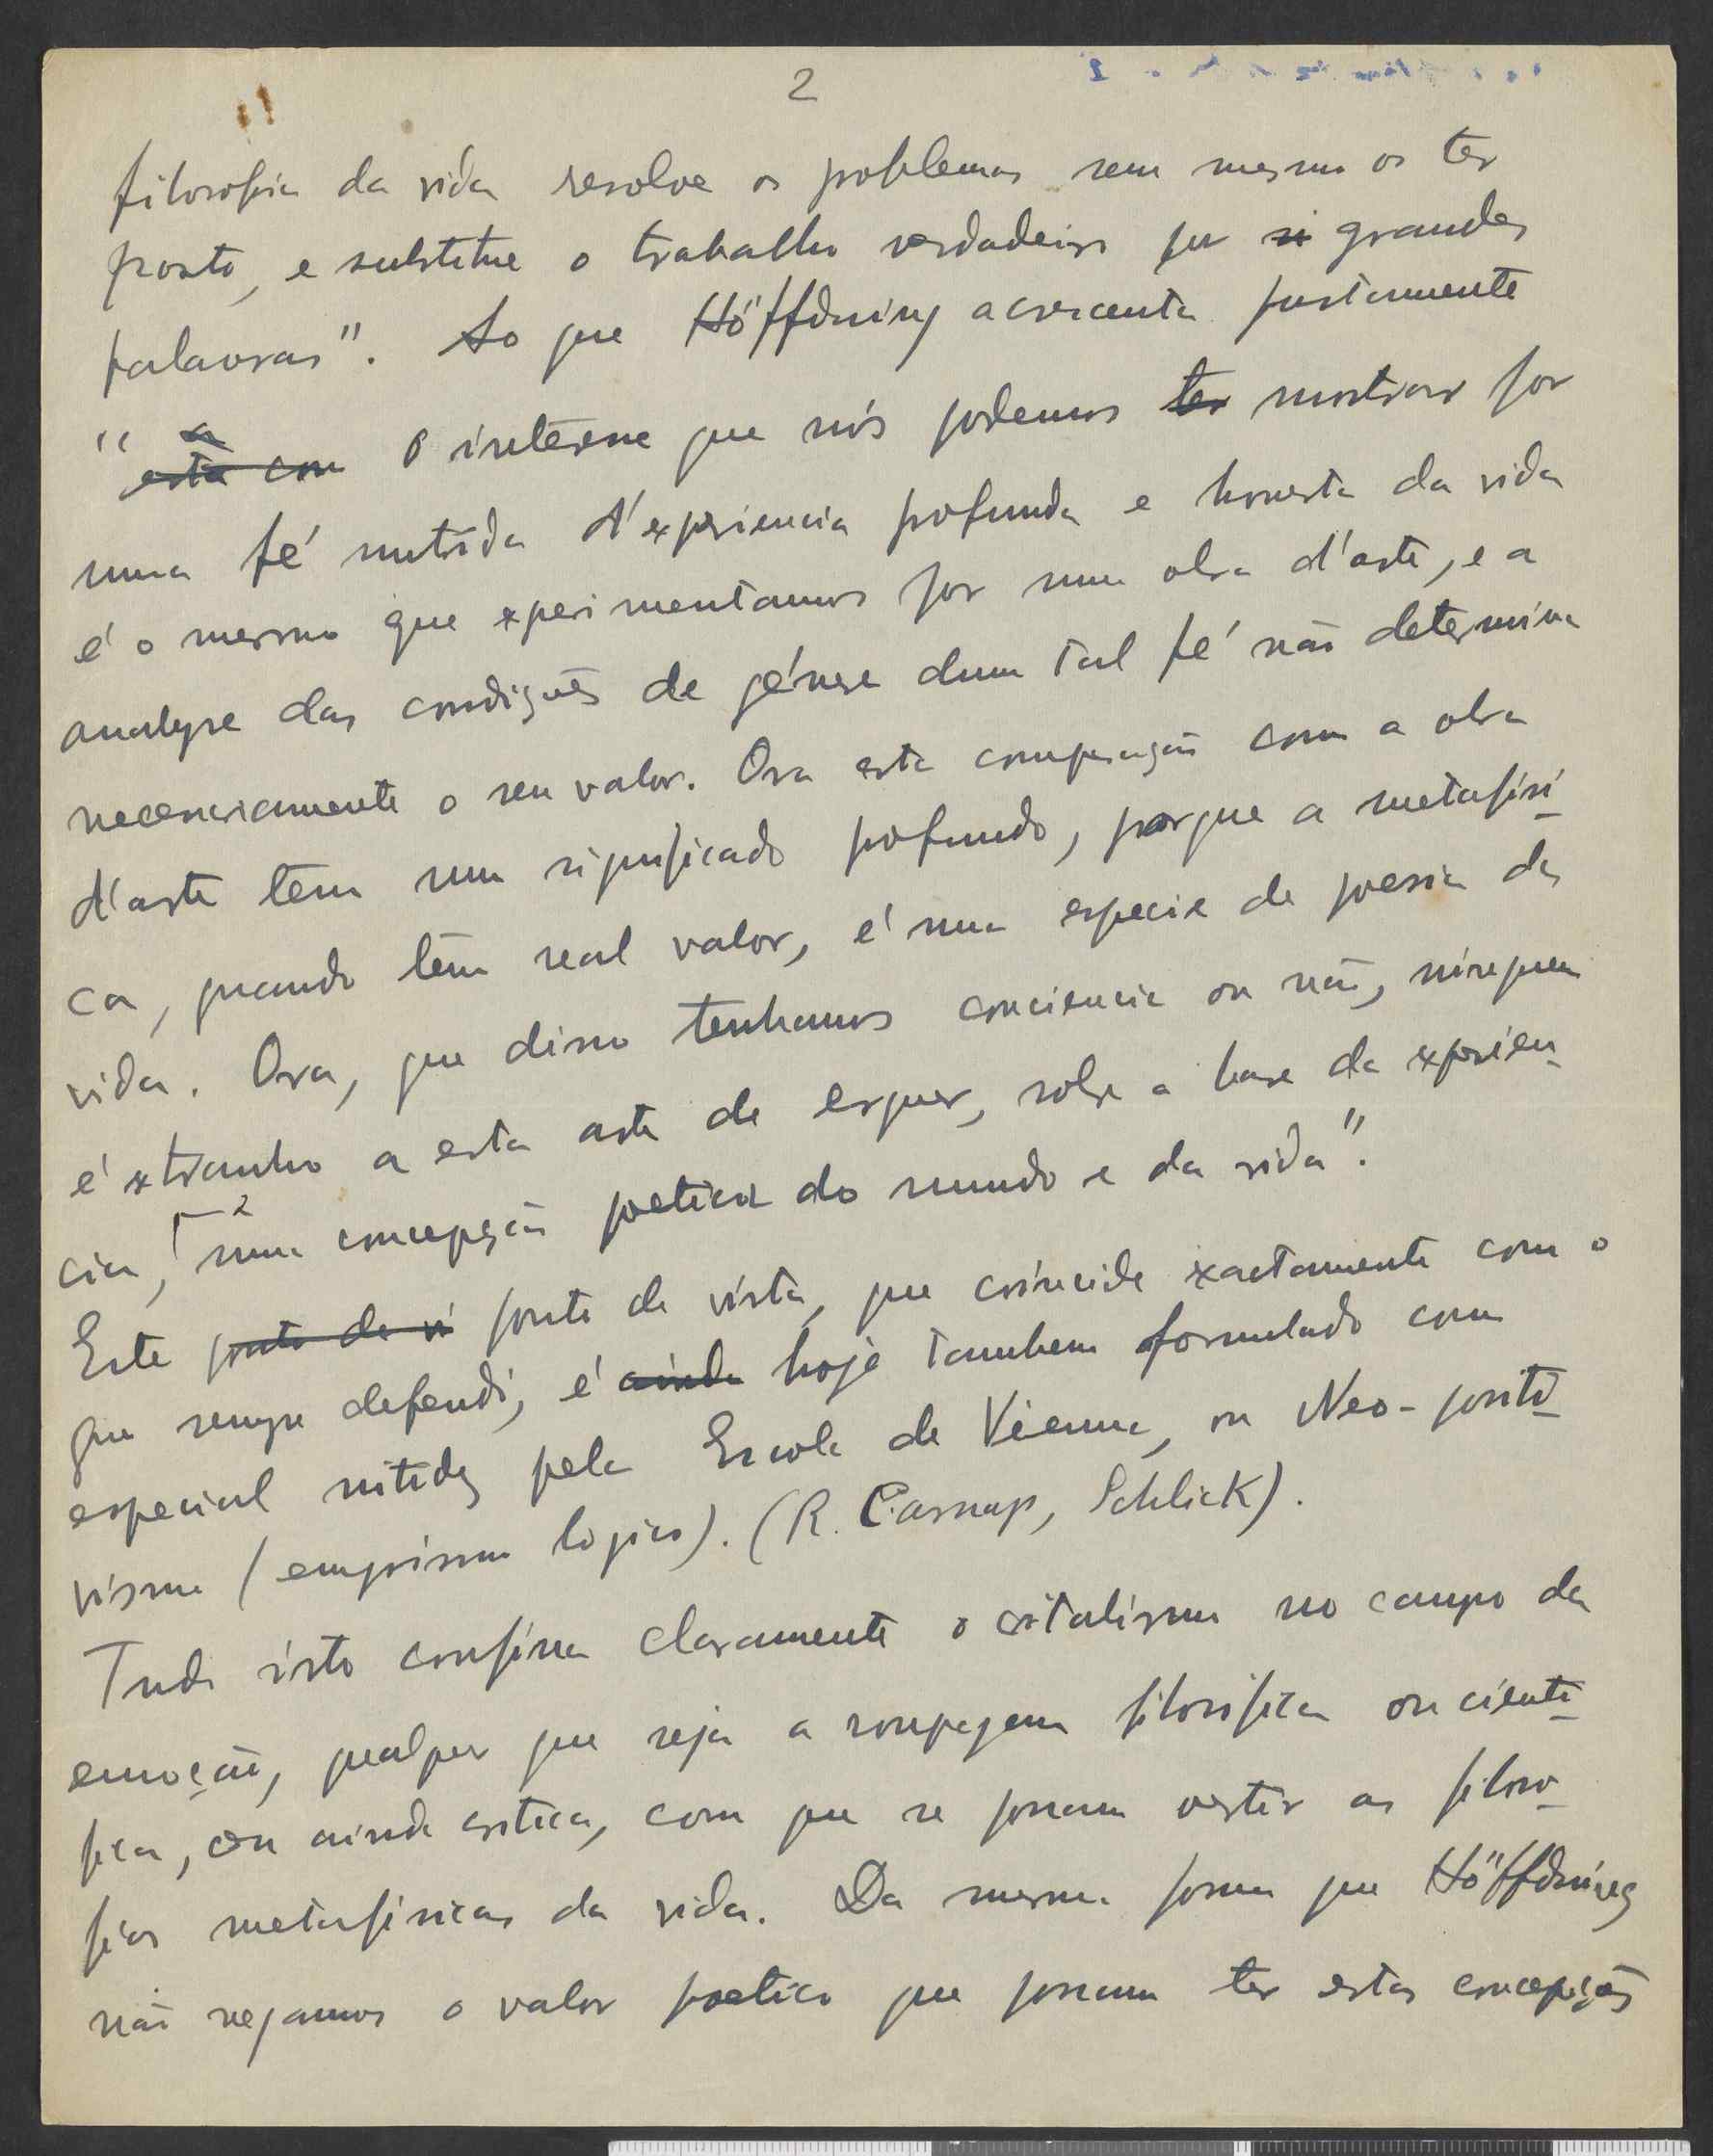 2
filosofia da vida resolve os problemas sem mesmo os ter
posto, e substitue o trabalho verdadeiro por si grandes
palavras". Ao que Höffding acrecenta justamente
"esta com o interesse que nós podemos ter mostrar por
uma fé nutrida d'experiencia profunda e honesta da vida
é o mesmo que experimentamos por uma obra d'arte, e a
analyse das condições de génese duma tal fé não determina
necessariamente o seu valor. Ora esta comparação com a obra
d'arte tem um significado profundo, porque a metafisi-
ca, quando tem real valor, é uma especie de poesia da
vida. Ora, que disso tenhamos conciencia ou não, ninguem
é extranho a esta arte de erguer, sobre a base da experien-
cia, uma concepção poetica do mundo e da vida".
Este ponto de vi ponto de vista, que coincide exactamente com o
que sempre defendi, é ainda hoje tambem formulado com
especial nitidez pela Escola de Vienna, ou Neo-positi-
vismo (empirismo logico). (R. Carnap, Schlick).
Tudo isto confina claramente o vitalismo no campo da
emoção, qualquer que seja a roupagem filosofica ou cienti-
fica, ou ainda critica, com que se possam vestir as filoso-
fias metafisicas da vida. Da mesma forma que Höffding
não negamos o valor poetico que possam ter estas concepções